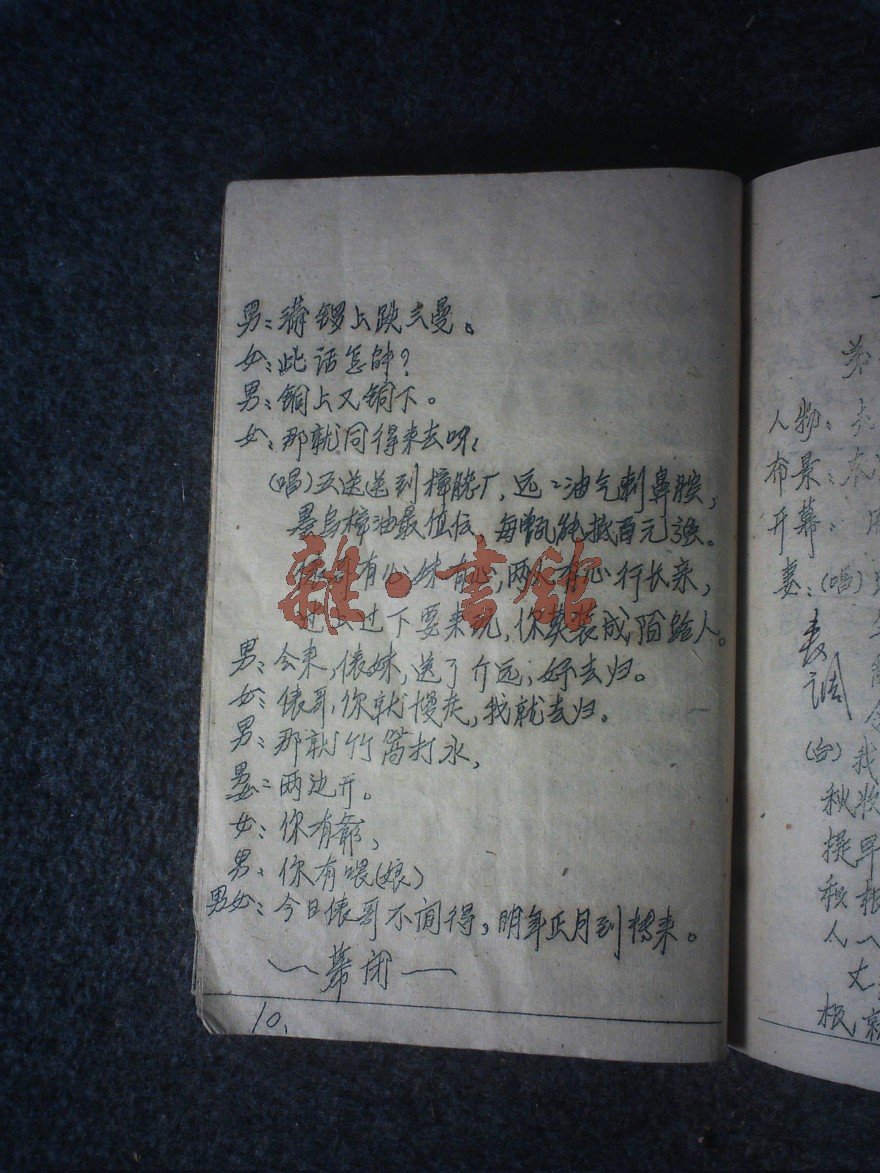 男：满锣上跌么曼。
女：此话怎咔？
男：铜上又铜下。
女：那就同得来去呀！
(唱)五送送到樟脑厂，远远油气刺鼻腔，
墨乌樟油最值伝，每甑能抵百元强。
有心妹有心，两人有心行长亲，
过上过下要来玩，你莫装成陌路人。
男：会来，俵妹，送了介远，好去归。
女：俵哥，你就慢走，我就去归。
男：那就竹篙打水，
男女：两边开。
女：你有爺，
男：你有喂(娘)
男女：今日俵哥不闲得，明年正月到转来。
——幕闭——
10.
雜·書館
人物：
布景：
开幕：
(唱)
表调
(白)我
秋收
提早
秧根
人
丈
根，就